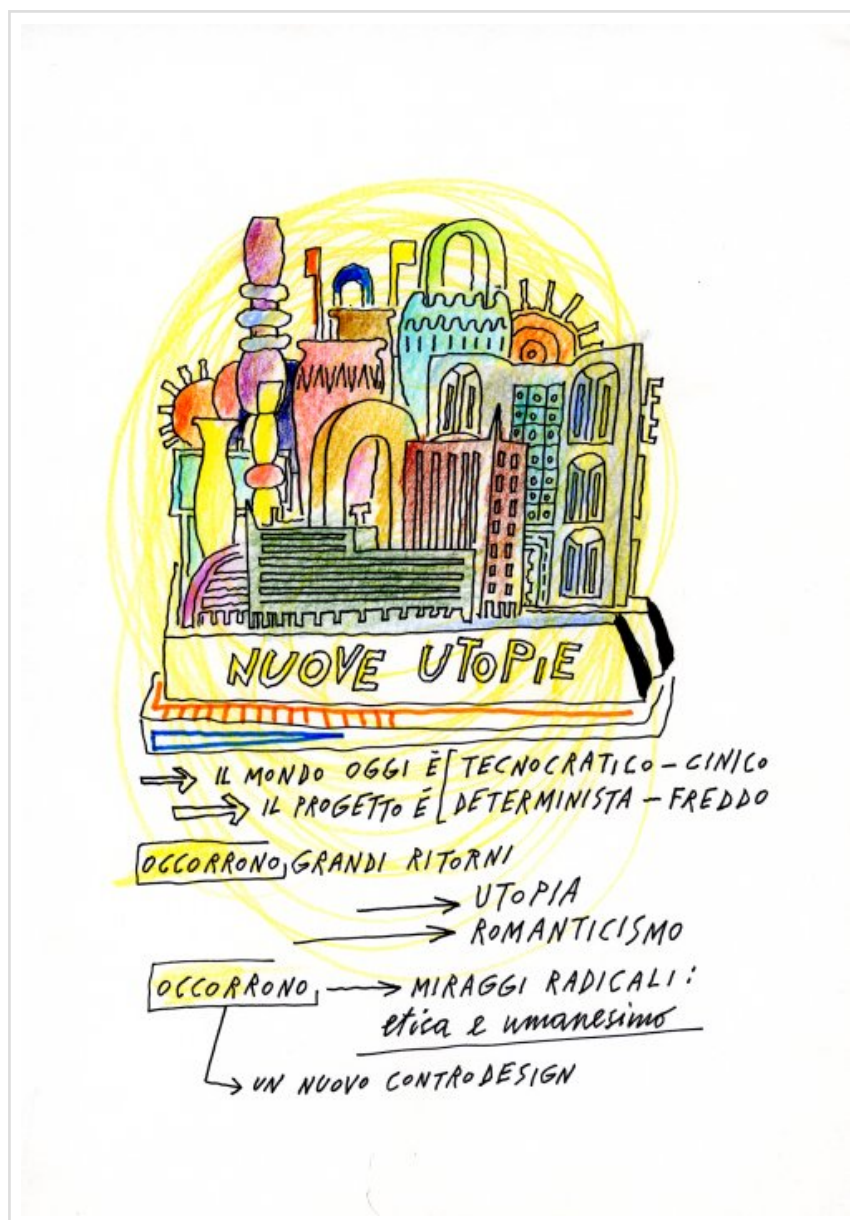 NUOVE UTOPIE
IL MONDO OGGI È [TECNOCRATICO – CINICO
IL PROGETTO É [DETERMINISTA – FREDDO
OCCORRONO GRANDI RITORNI
UTOPIA
ROMANTICISMO
OCCORRONO → MIRAGGI RADICALI:
etica e umanesimo
UN NUOVO CONTRODESIGN